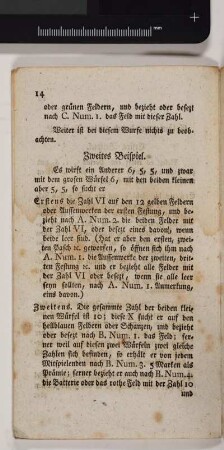 14
oder grünen Feldern, und bezieht oder besezt
nach C. Num. 1. das Feld mit dieser Zahl.
Weiter ist bei diesem Wurfe nichts zu beob-
achten.
Zweites Beispiel.
Es wirft ein Anderer 6, 5, 5, und zwar
mit dem grosen Würfel 6, mit den beiden kleinen
aber 5, 5, so sucht er
Erstens die Zahl VI auf den 12 gelben Feldern
oder Aussenwerken der ersten Festung, und be-
zieht nach A. Num. 2. die beiden Felder mit
der Zahl VI, oder besezt eines davon, wenn
beide leer sind. (Hat er aber den ersten, zwei-
ten Pasch ꝛc. geworfen, so öffnen sich ihm nach
A. Num. 1. die Aussenwerke der zweiten, drit-
ten Festung ꝛc. und er bezieht alle Felder mit
der Zahl VI oder besezt, wenn sie alle leer
seyn sollten, nach A. Num. 1. Anmerkung,
eins davon.)
Zweitens. Die gesammte Zahl der beiden klei-
nen Würfel ist 10; diese X sucht er auf den
hellblauen Feldern oder Schanzen, und bezieht
oder besezt nach B. Num. 1. das Feld; fer-
ner weil auf diesen zwei Würfeln zwei gleiche
Zahlen sich befinden, so erhält er von jedem
Mitspielenden nach B. Num. 3. 5 Marken als
Prämie; ferner bezieht er auch nach B. Num. 4.
die Batterie oder das rothe Feld mit der Zahl 10
und